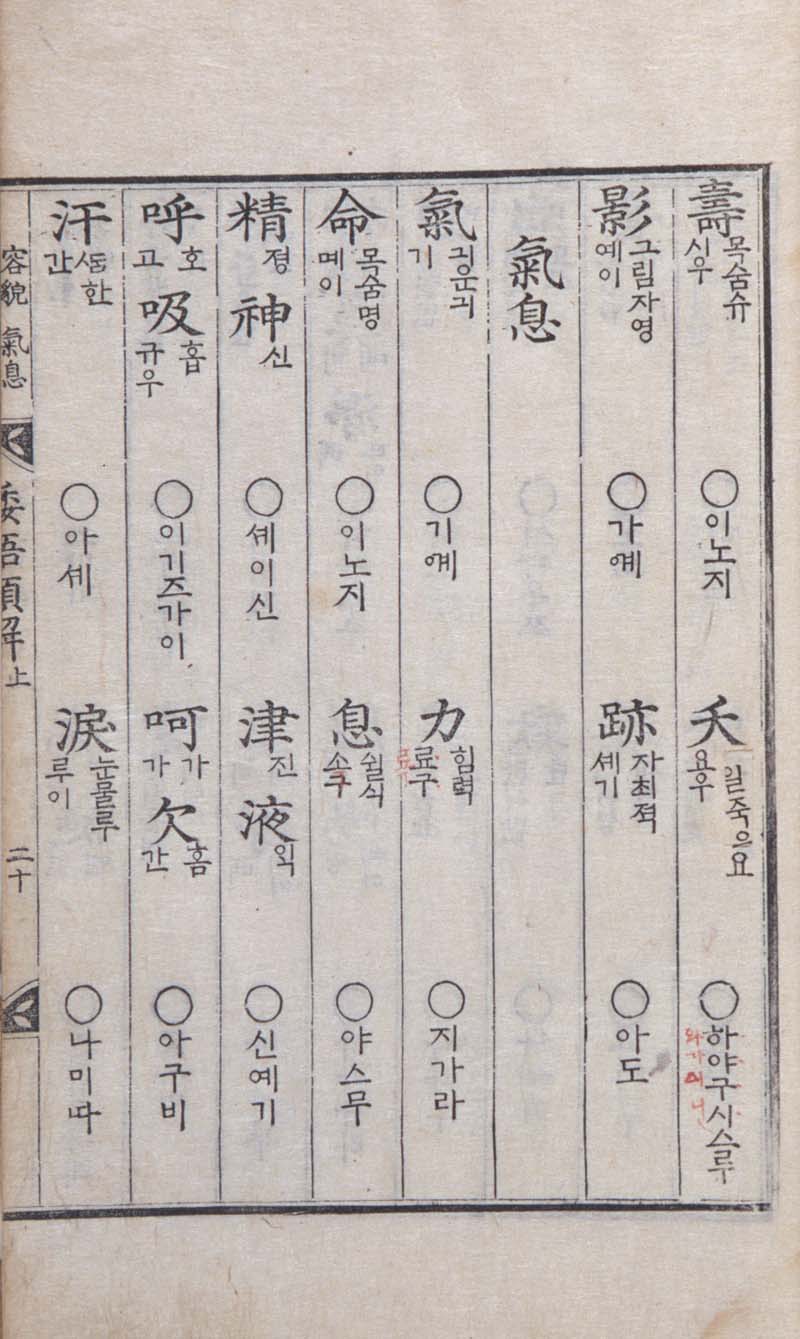 壽 목숨슈 시우 ○이노지
夭 일즉으요 요우 ○하야구시스루
影 그림자영 예이 ○가예
跡 자최젹 셰기 ○아도
氣息
氣 긔운긔 기 ○기예
力 힘력 료구 ○지가라
命 목숨명 몌이 ○이노지
息 쉴식 소구 ○야스무
精 졍 神 신 ○셰이신
津 진 液 익 ○신예기
呼 호 고 吸 흡 규우 ○이기즈가이
呵 가 가 欠 흠 간 ○아구비
汗 ᄯᆞᆷ한 간 ○아셰
淚 눈물루 루이 ○나미따
容貌 氣息
倭語類解 上
二十